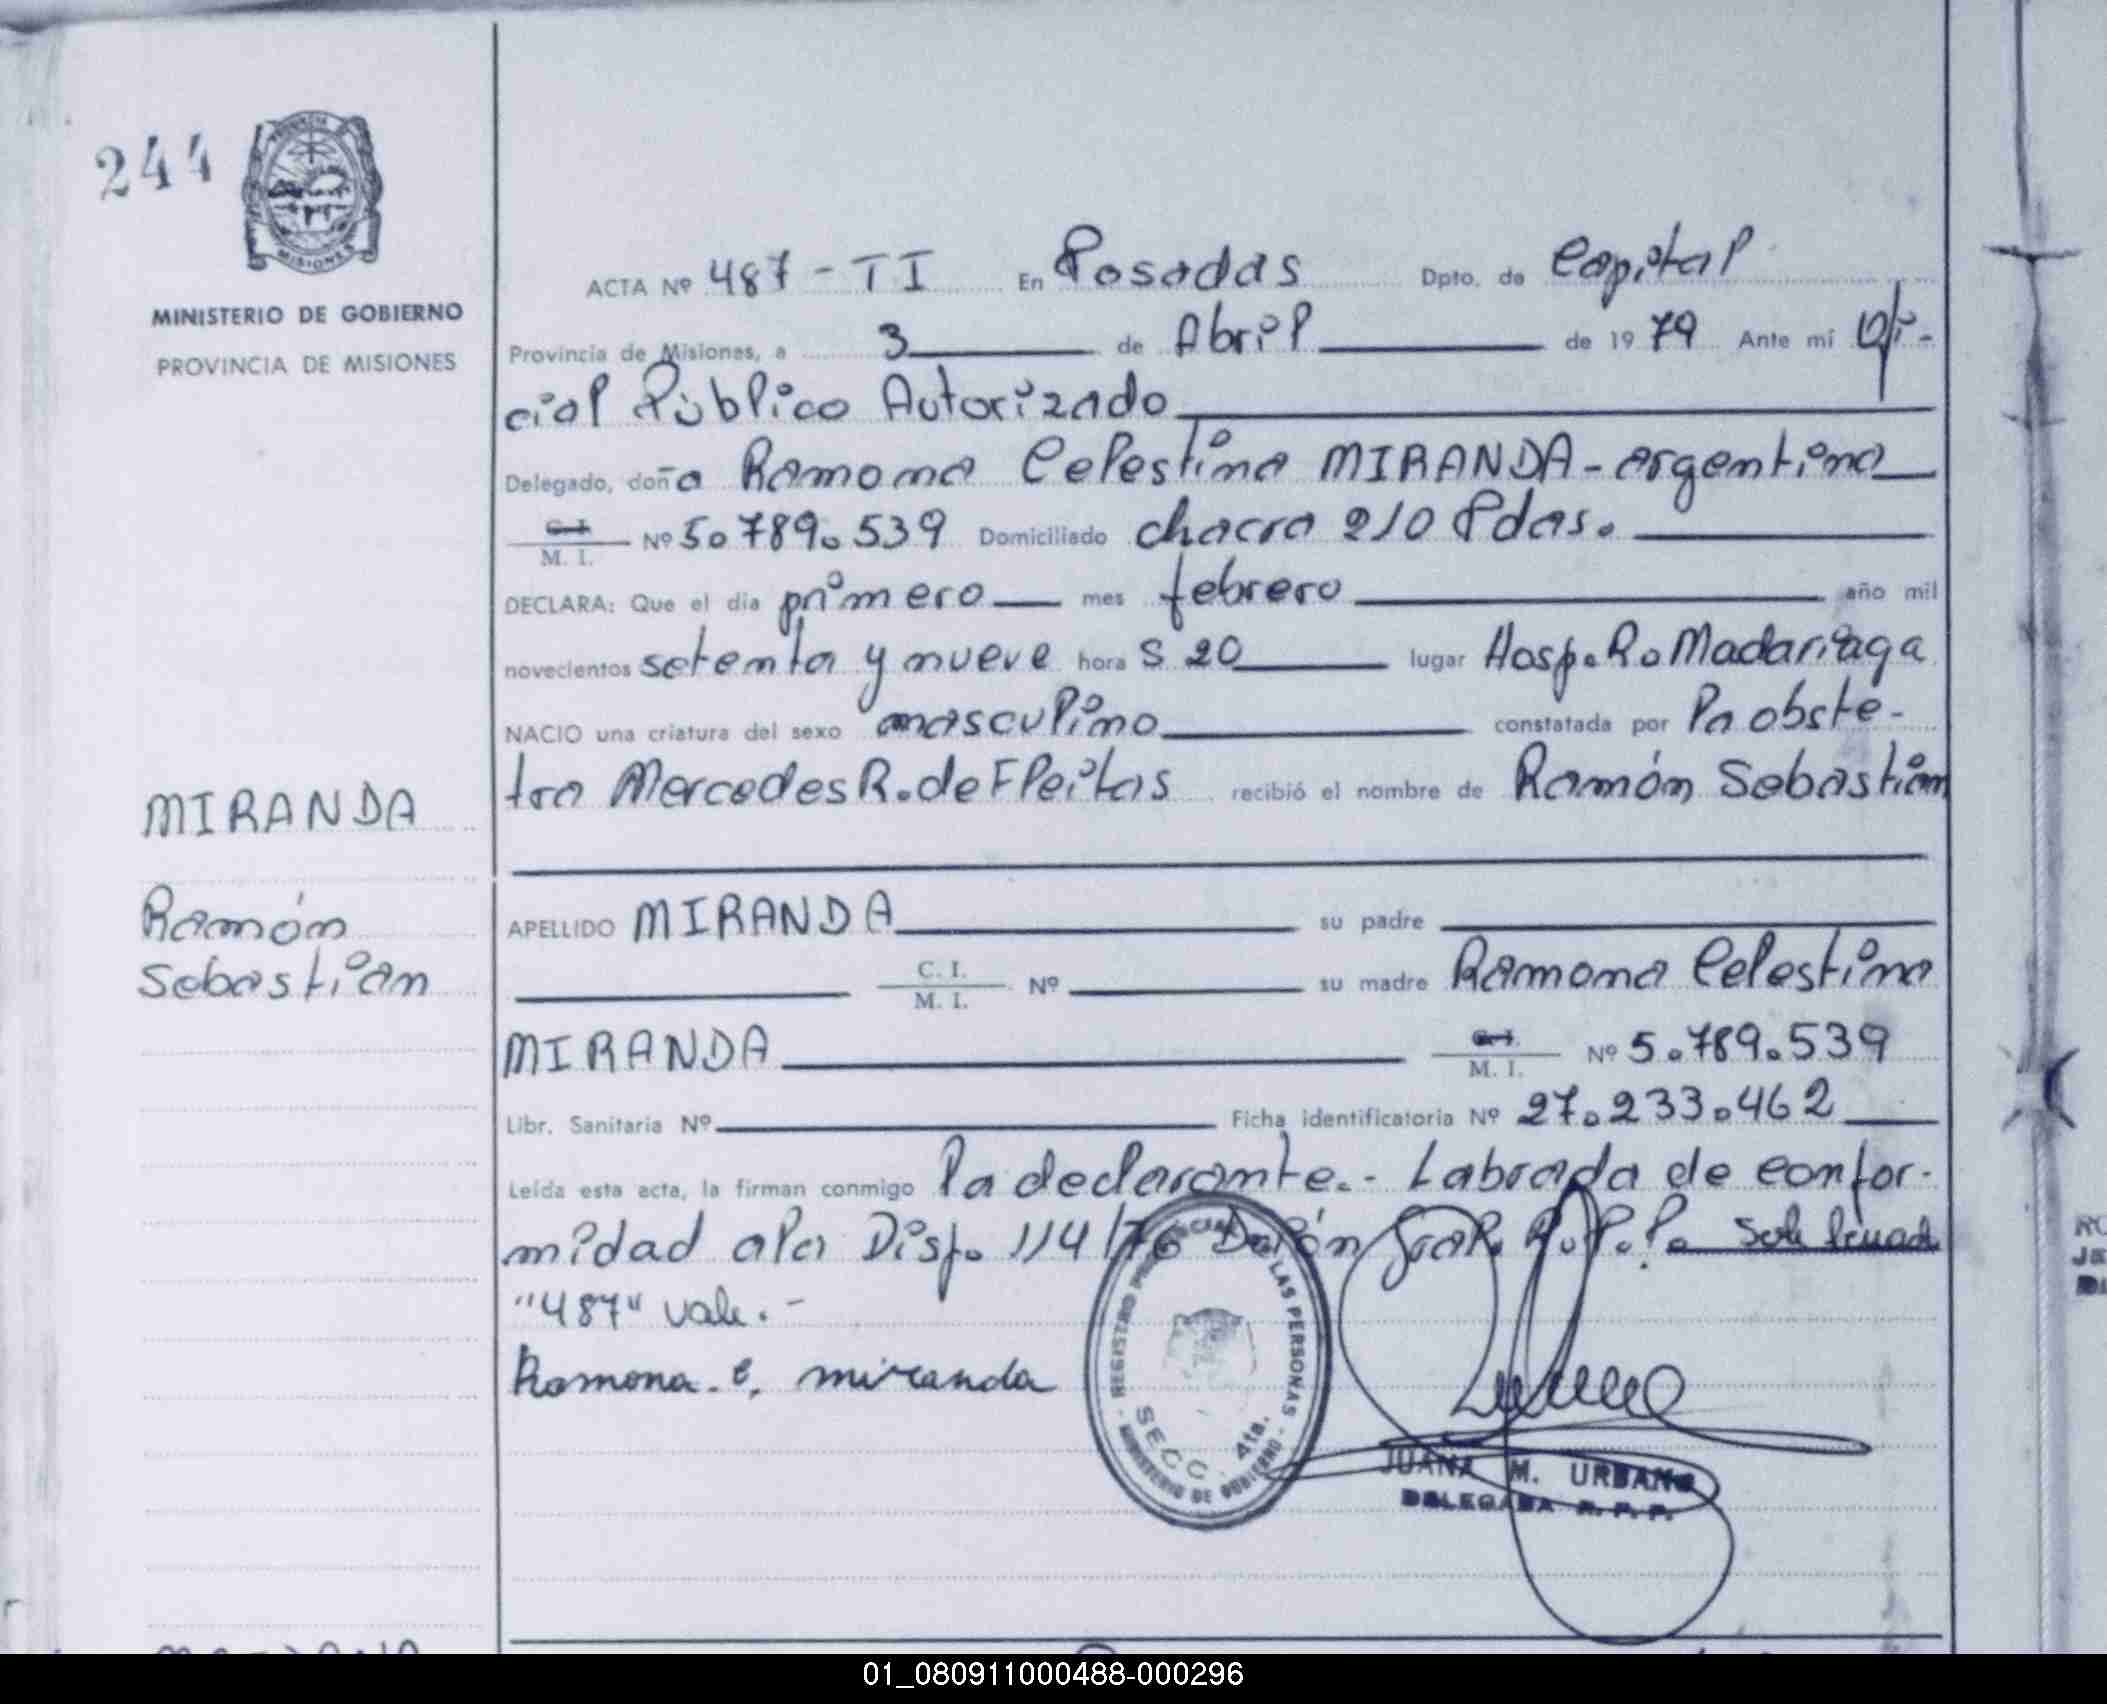 244
PROVINCIA DE
MISIONES
MINISTERIO DE GOBIERNO
PROVINCIA DE MISIONES
ACTA Nº 487 - TI En Posadas Dpto. de Capital
Provincia de Misiones, a 3 de Abril de 1979 Ante mi Ofi-
cial Público Autorizado
Delegado, doña Ramona Celestina MIRANDA - argentina
C. I.
M. I. Nº 5.789.539 Domiciliado chacra 210 Pdas.
DECLARA: Que el día primero mes febrero año mil
novecientos setenta y nueve hora s 20 lugar Hosp. R. Madariaga
NACIO una criatura del sexo masculino constatada por la obste-
tra Mercedes R. de Fleitas recibió el nombre de Ramón Sebastian
MIRANDA
Ramón
Sebastián
APELLIDO MIRANDA su padre
C. I.
M. I. Nº su madre Ramona Celestina
MIRANDA C. I.
M. I. Nº 5.789.539
Libr. Sanitaria Nº Ficha identificatoria Nº 27.233.462
Leída esta acta, la firman conmigo la declarante.- Labrada de confor-
midad a la Disp. 114/76 Dción Gral. R.P.P.
"487" vale.-
Ramona. C. miranda
REGISTRO PROVINCIAL DE LAS PERSONAS
SECC. 4ta.
- MINISTERIO DE GOBIERNO -
JUANA M. URBANO
DELEGADA R. P. P.
01_080911000488-000296